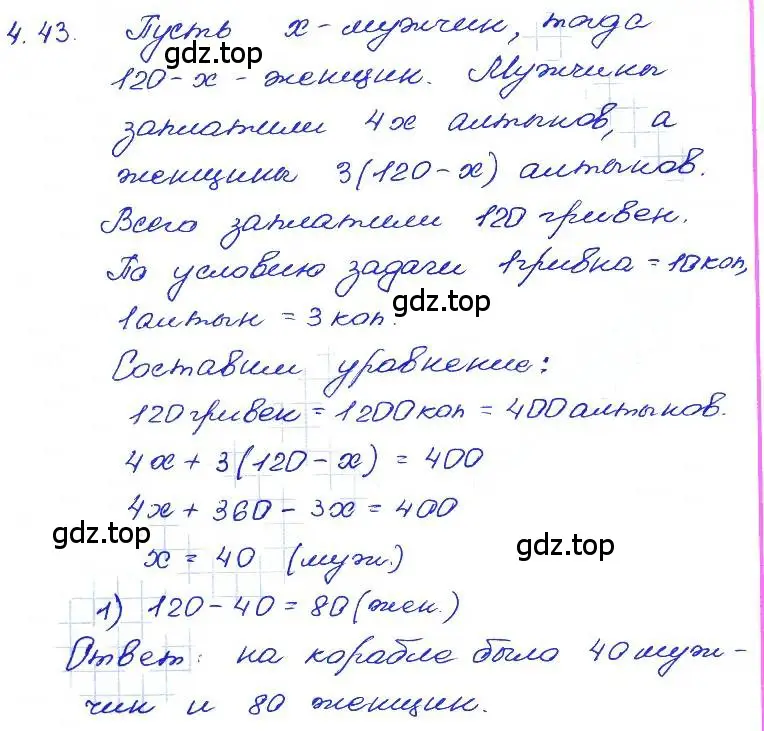 4.43. Пусть х - мужчин, тогда
120-х - женщин. Мужчины
заплатили 4х алтынов, а
женщины 3(120-х) алтынов.
Всего заплатили 120 гривен.
По условию задачи 1гривна = 10коп,
1алтын = 3 коп.
Составим уравнение:
120гривен = 1200коп = 400алтынов.
4х + 3(120-х) = 400
4х + 360 - 3х = 400
х = 40 (муж.)
1) 120-40 = 80(жен.)
Ответ: на корабле было 40 муж-
чин и 80 женщин.
gdz.top
gdz.top
gdz.top
gdz.top
gdz.top